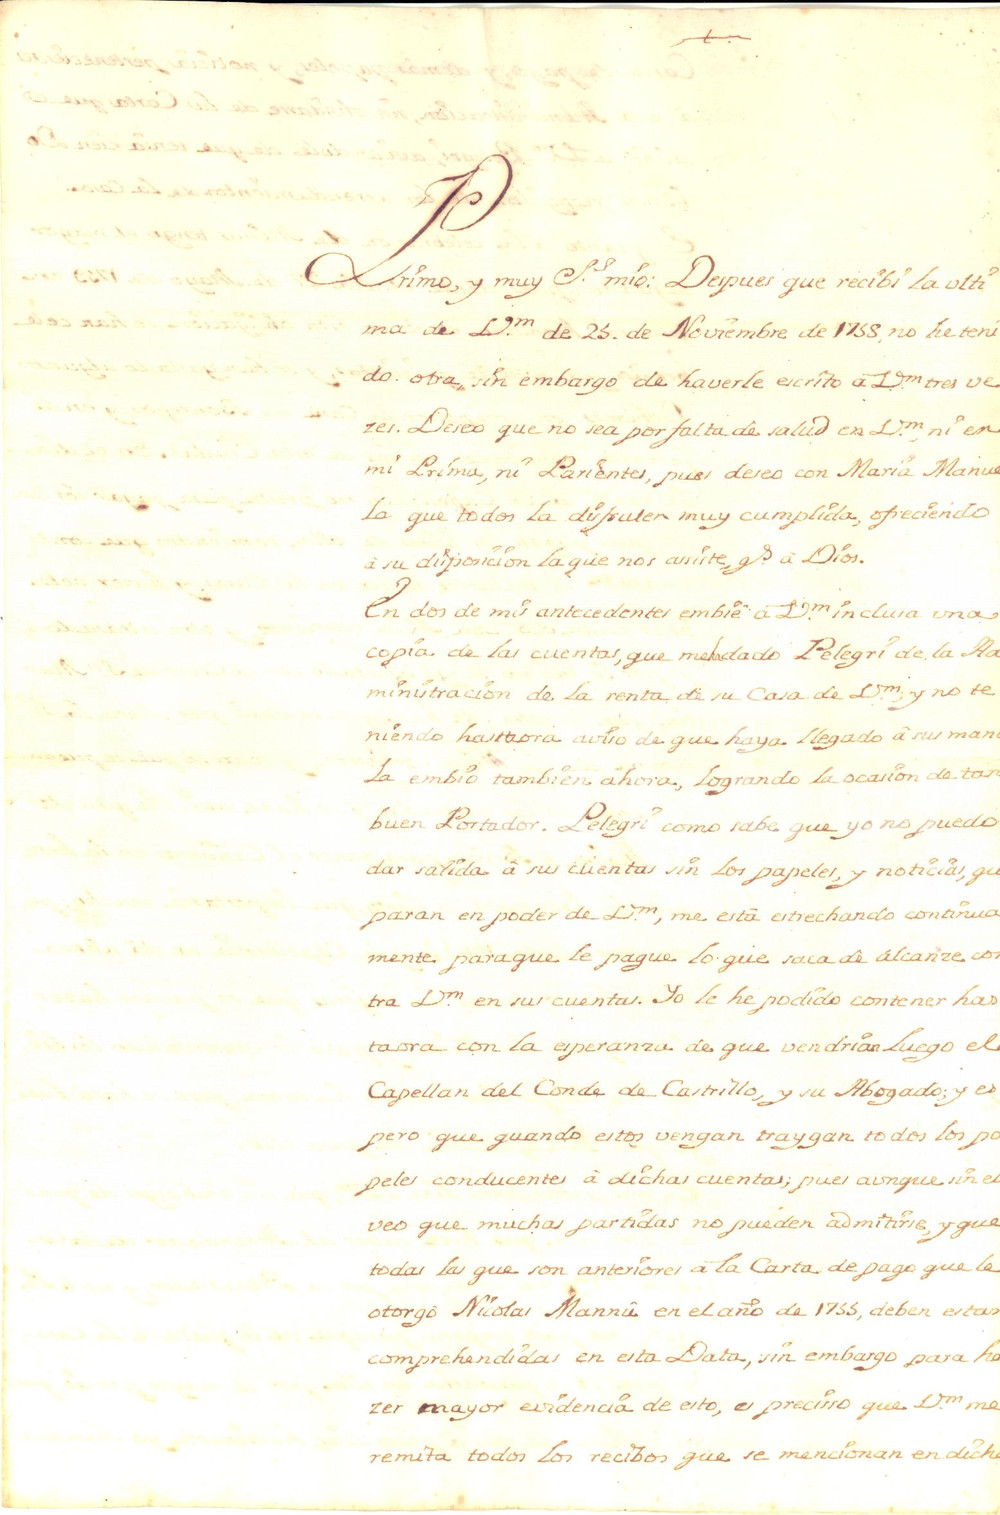 Primo, y muy S.r mio: Despues que recibi la ulti
ma de V.m de 25. de Noviembre de 1758, no he teni
do. otra, sin embargo de haverle escrito â V.m tres ve
zes. Deseo que no sea por falta de salud en V.m, ni en
mi Prima, ni Parientes, pues deseo con Maria Manue
la que todos la disfruten muy cumplida, ofreciendo
â su disposicion la que nos assiste, g.s â Dios.
En dos de mis antecedentes embie â V.m inclusa una
copia de las cuentas, que me ha dado Pelegri de la Ad
ministracion de la renta de su Casa de V.m; y no te
niendo hastaora aviso de que haya llegado â sus mano
la embio tambien ahora, logrando la ocasion de tan
buen Portador. Pelegri como sabe que yo no puedo
dar salida â sus cuentas sin los papeles, y noticias, qu
paran en poder de V.m, me està estrechando continua
mente paraque le pague lo que saca de alcanze con
tra V.m en sus cuentas. Yo le he podido contener has
taora con la esperanza de que vendrian luego el
Capellan del Conde de Castrillo, y su Abogado; y es
pero que quando estos vengan traygan todos los pa
peles conducentes â dichas cuentas; pues aunque sin el
veo que muchas partidas no pueden admitirse, y que
todas las que son anteriores â la Carta de pago que le
otorgò Nicolas Mannù en el año de 1755, deben estar
comprehendidas en esta Data, sin embargo para ha
zer mayor evidencia de esto, es precisso que V.m me
remita todos los recibos que se mencionan en dicha